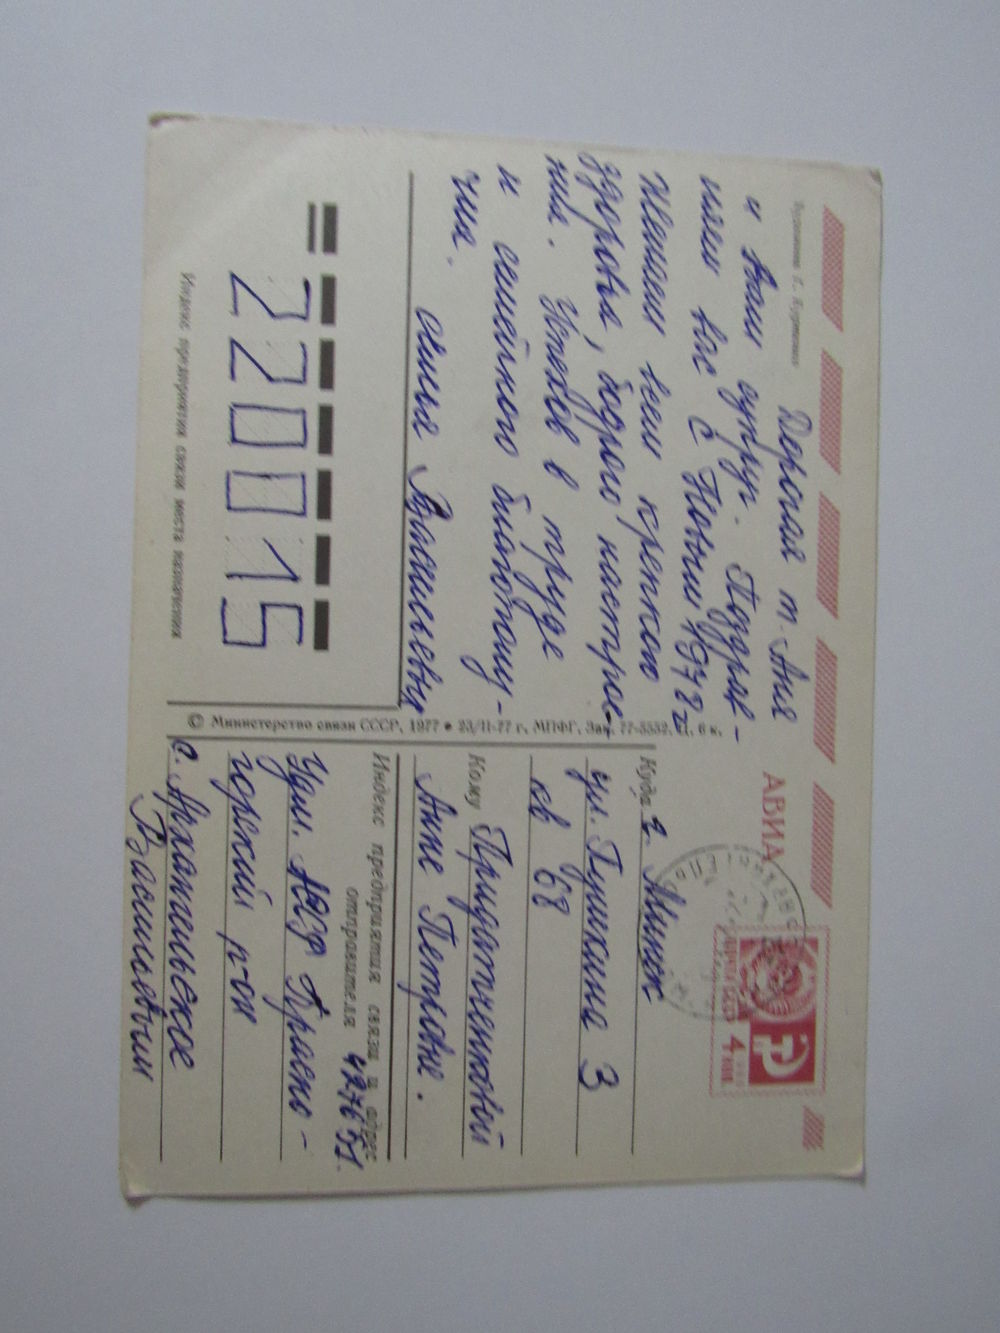 Художник Г. Куртенко
Дорогая т. Аня
и Ваш супруг. Поздрав-
ляем вас с Новым 1978 г.
Желаем всем крепкого
здоровья, бодрого настрое
ния. Успехов в труде
и семейного благополу-
чия.
семья Васильевых
220015
Индекс предприятия связи места назначения
© Министерство связи СССР, 1977 • 23/II-77 г., МПФГ, Зак. 77-5552. Ц. 6 к.
АВИА
ПОЧТА СССР
4 коп.
Куда г. Минск
ул. Пушкина 3
кв 68
Кому Придатченковой
Анне Петровне.
Индекс предприятия связи и адрес
отправителя 427651.
Удм. АССР Красно-
горский р-он
с. Архангельское
Васильевым